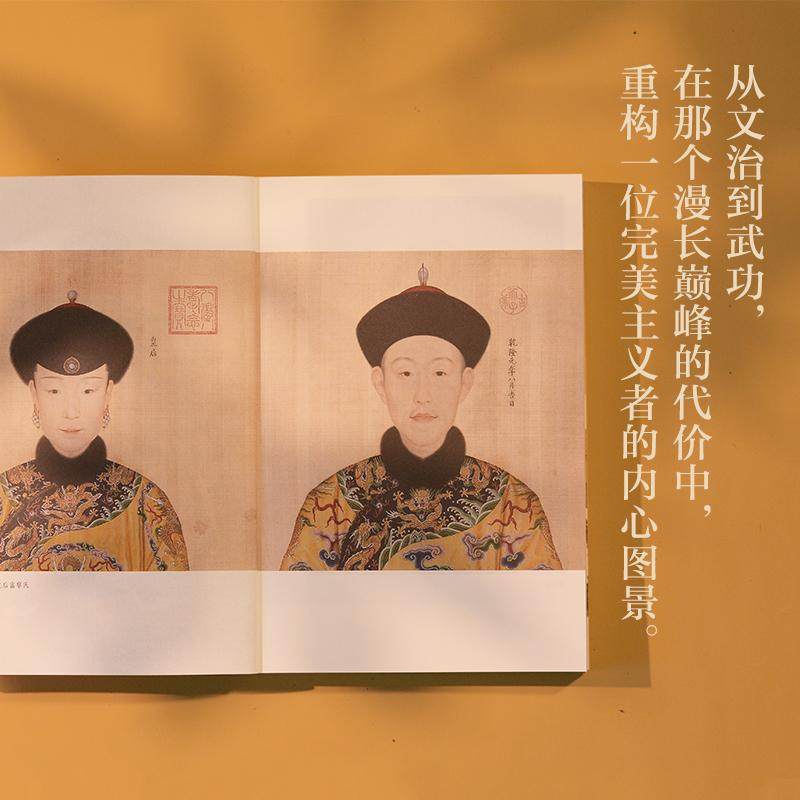 从文治到武功，
在那个漫长巅峰的代价中，
重构一位完美主义者的内心图景。
乾隆元年八月吉日
皇后
后富察氏